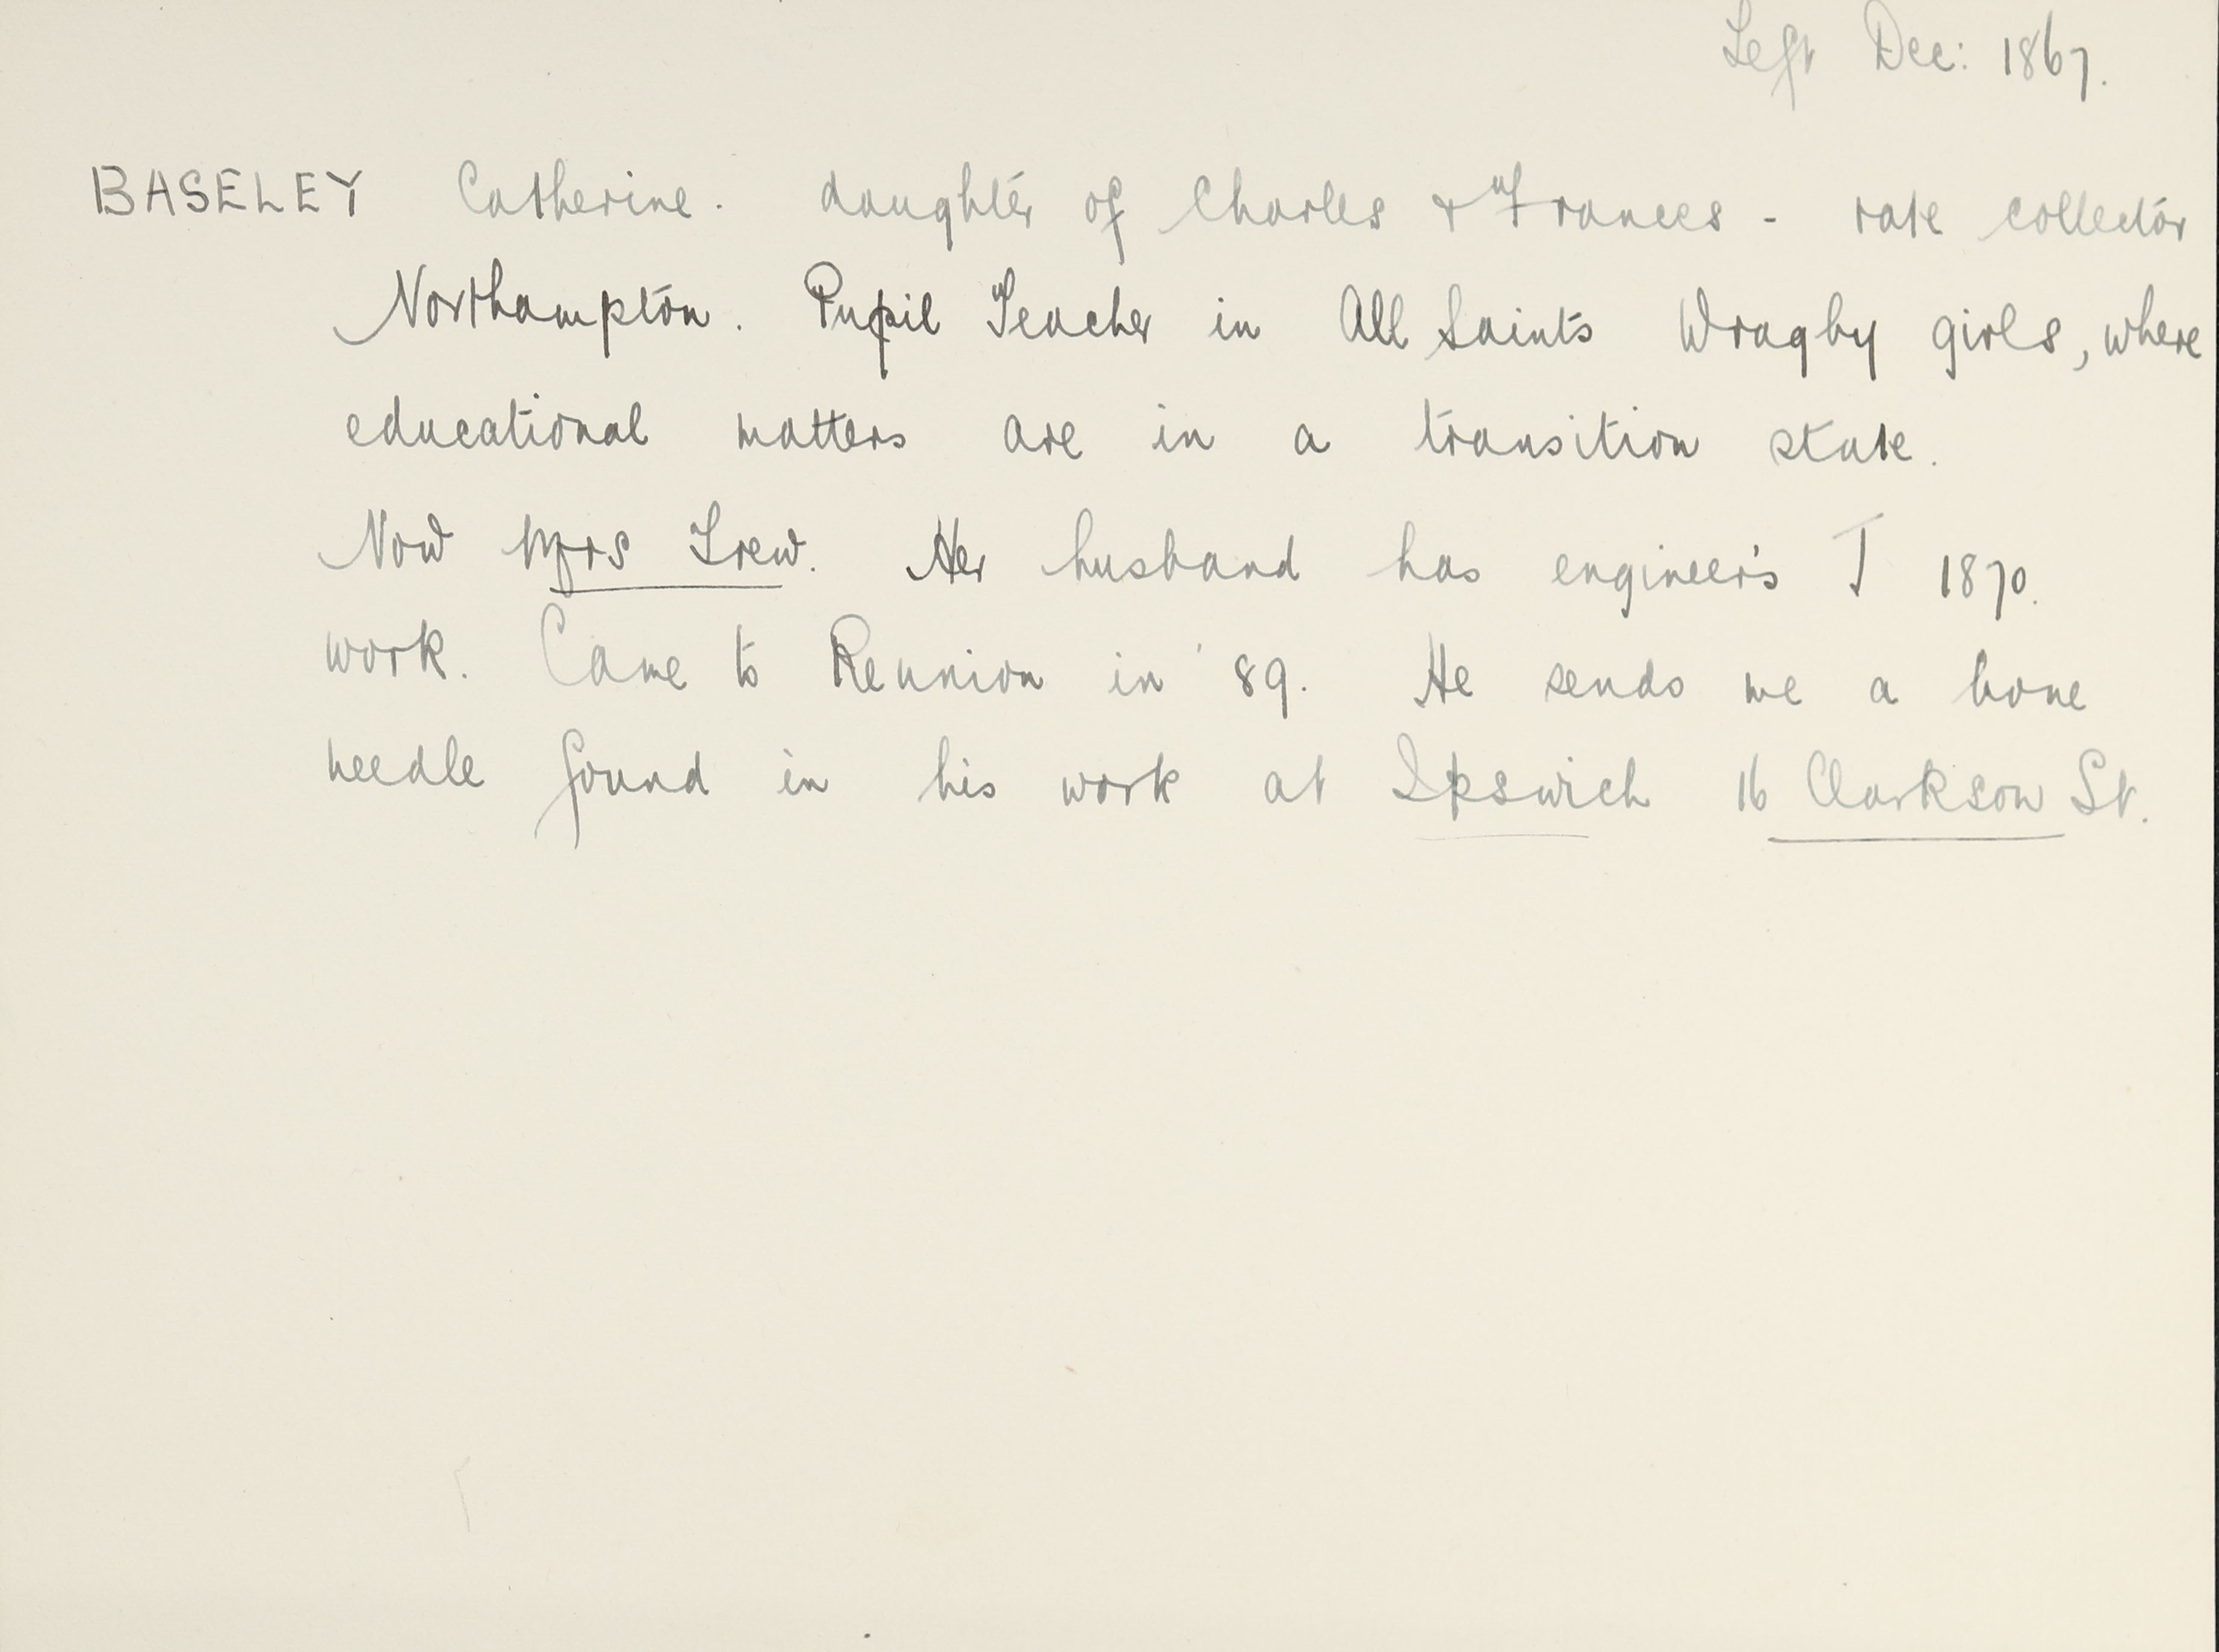 Left Dec: 1867.
BASELEY Catherine. daughter of Charles & Frances - rate collector
Northampton. Pupil Teacher in All Saints Wragby girls, where
educational matters are in a transition state.
Now Mrs Trew. Her husband has engineer's T 1870.
work. Came to Reunion in '89. He sends me a bone
needle found in his work at Ipswich 16 Clarkson St.